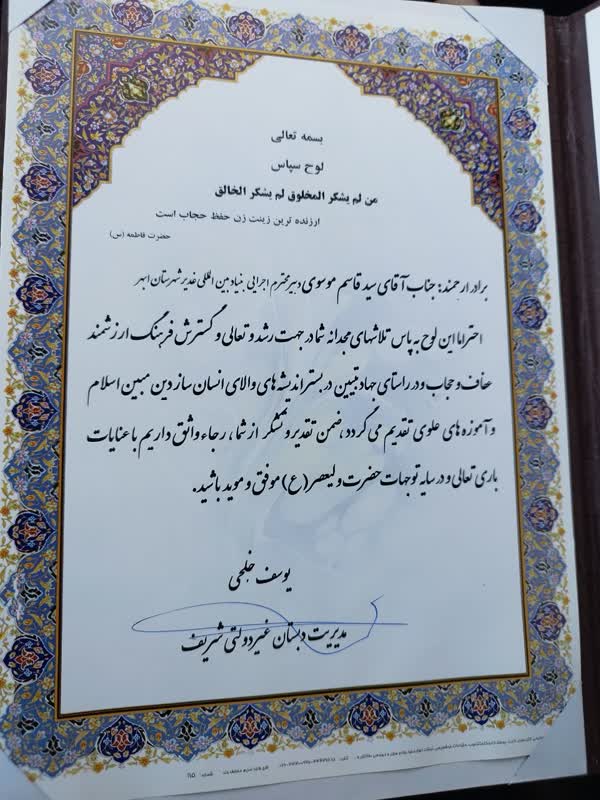 بسمه تعالی
لوح سپاس
من لم یشکر المخلوق لم یشکر الخالق
ارزنده ترین زینت زن حفظ حجاب است
حضرت فاطمه (س)
برادر ارجمند: جناب آقای سید قاسم موسوی دبیر محترم اجرایی بنیاد بین المللی غدیر شهرستان ابهر
احتراما این لوح به پاس تلاشهای مجدانه شما در جهت رشد و تعالی و گسترش فرهنگ ارزشمند
عفاف و حجاب و در راستای جهاد تبیین در بستر اندیشه های والای انسان ساز دین مبین اسلام
و آموزه های علوی تقدیم می گردد، ضمن تقدیر و تشکر از شما، رجاء واثق داریم با عنایات
باری تعالی و در سایه توجهات حضرت ولیعصر (ع) موفق و موید باشید.
یوسف خلجی
مدیریت دبستان غیر دولتی شریف